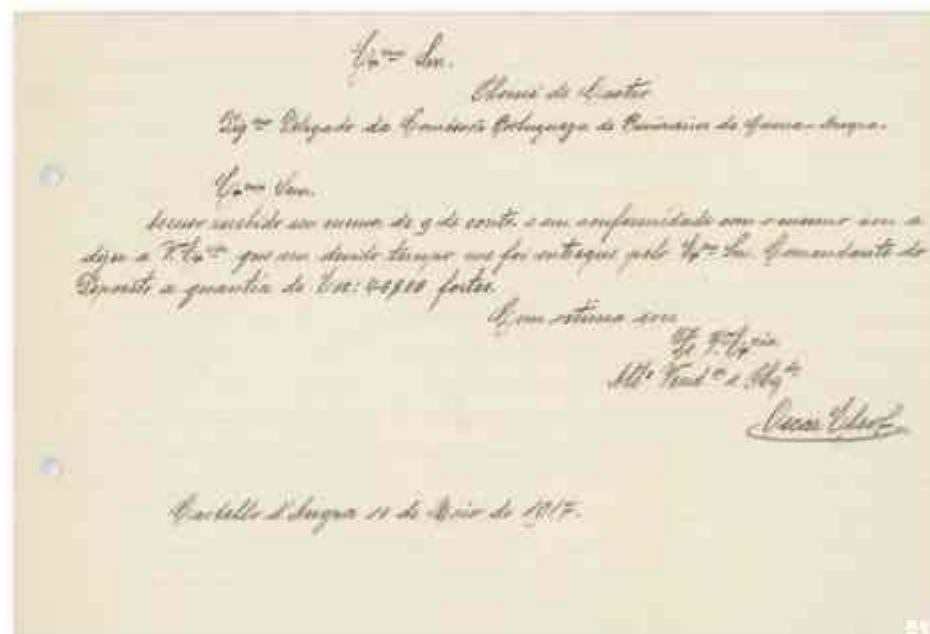 Exmo Snr.
de Castro
Digmo Delegado da Comissão Portugueza de Prisioneiros de Guerra - Angra.
Exmo Snr.
recebido seu memo de 9 do corrte. e em conformidade com o mesmo a
dizer a V. Exa que em devido tempo me foi entregue pelo Exmo Snr. Comandante do
Deposito a quantia de fortes.
Com estima sou
De V. Excia
Atto Vendor e Obgdo
Oscar
Castello d'Angra 11 de Maio de 1917.